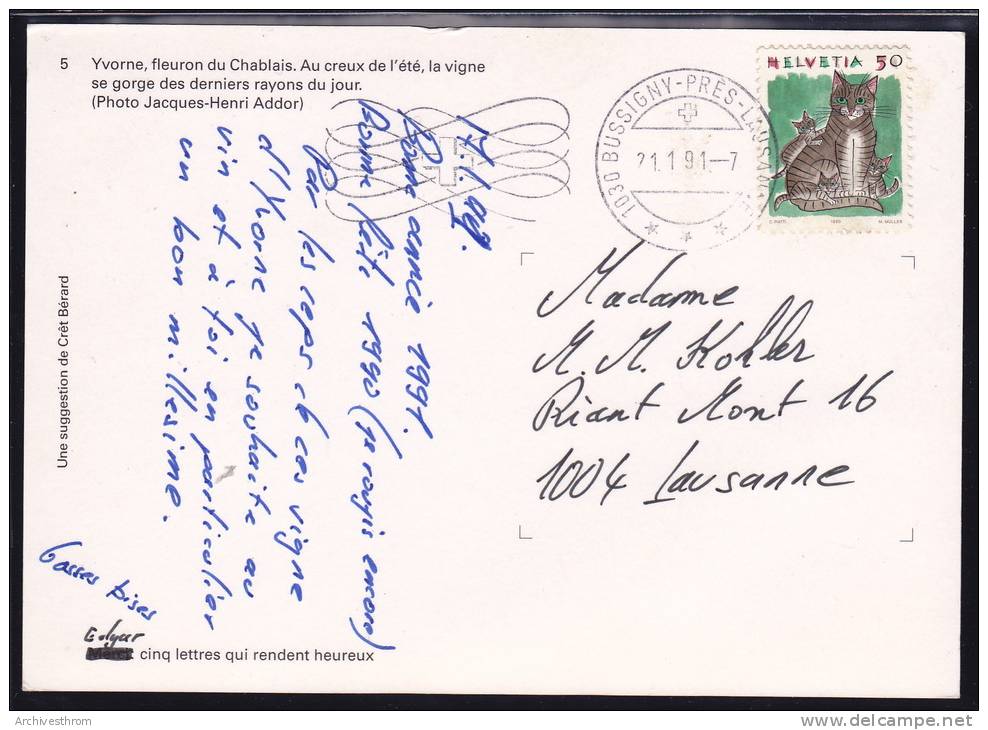 5 Yvorne, fleuron du Chablais. Au creux de l'été, la vigne
se gorge des derniers rayons du jour.
(Photo Jacques-Henri Addor)
HELVETIA 50
1030 BUSSIGNY-PRÈS-LAUSANNE
21.1.91.-7
Bonne année 1991.
Bonne fête 1990 (je rougis encore)
Par les ceps de ces vigne
d'Yvorne je souhaite au
vin et à toi en particulier
un bon millésime.
Grosses bises
Edgar
Merck cinq lettres qui rendent heureux
Une suggestion de Crêt Bérard
Madame
M. M. Kohler
Riant Mont 16
1004 Lausanne
1990
M. MÜLLER
Archivesthrom
www.delcampe.net